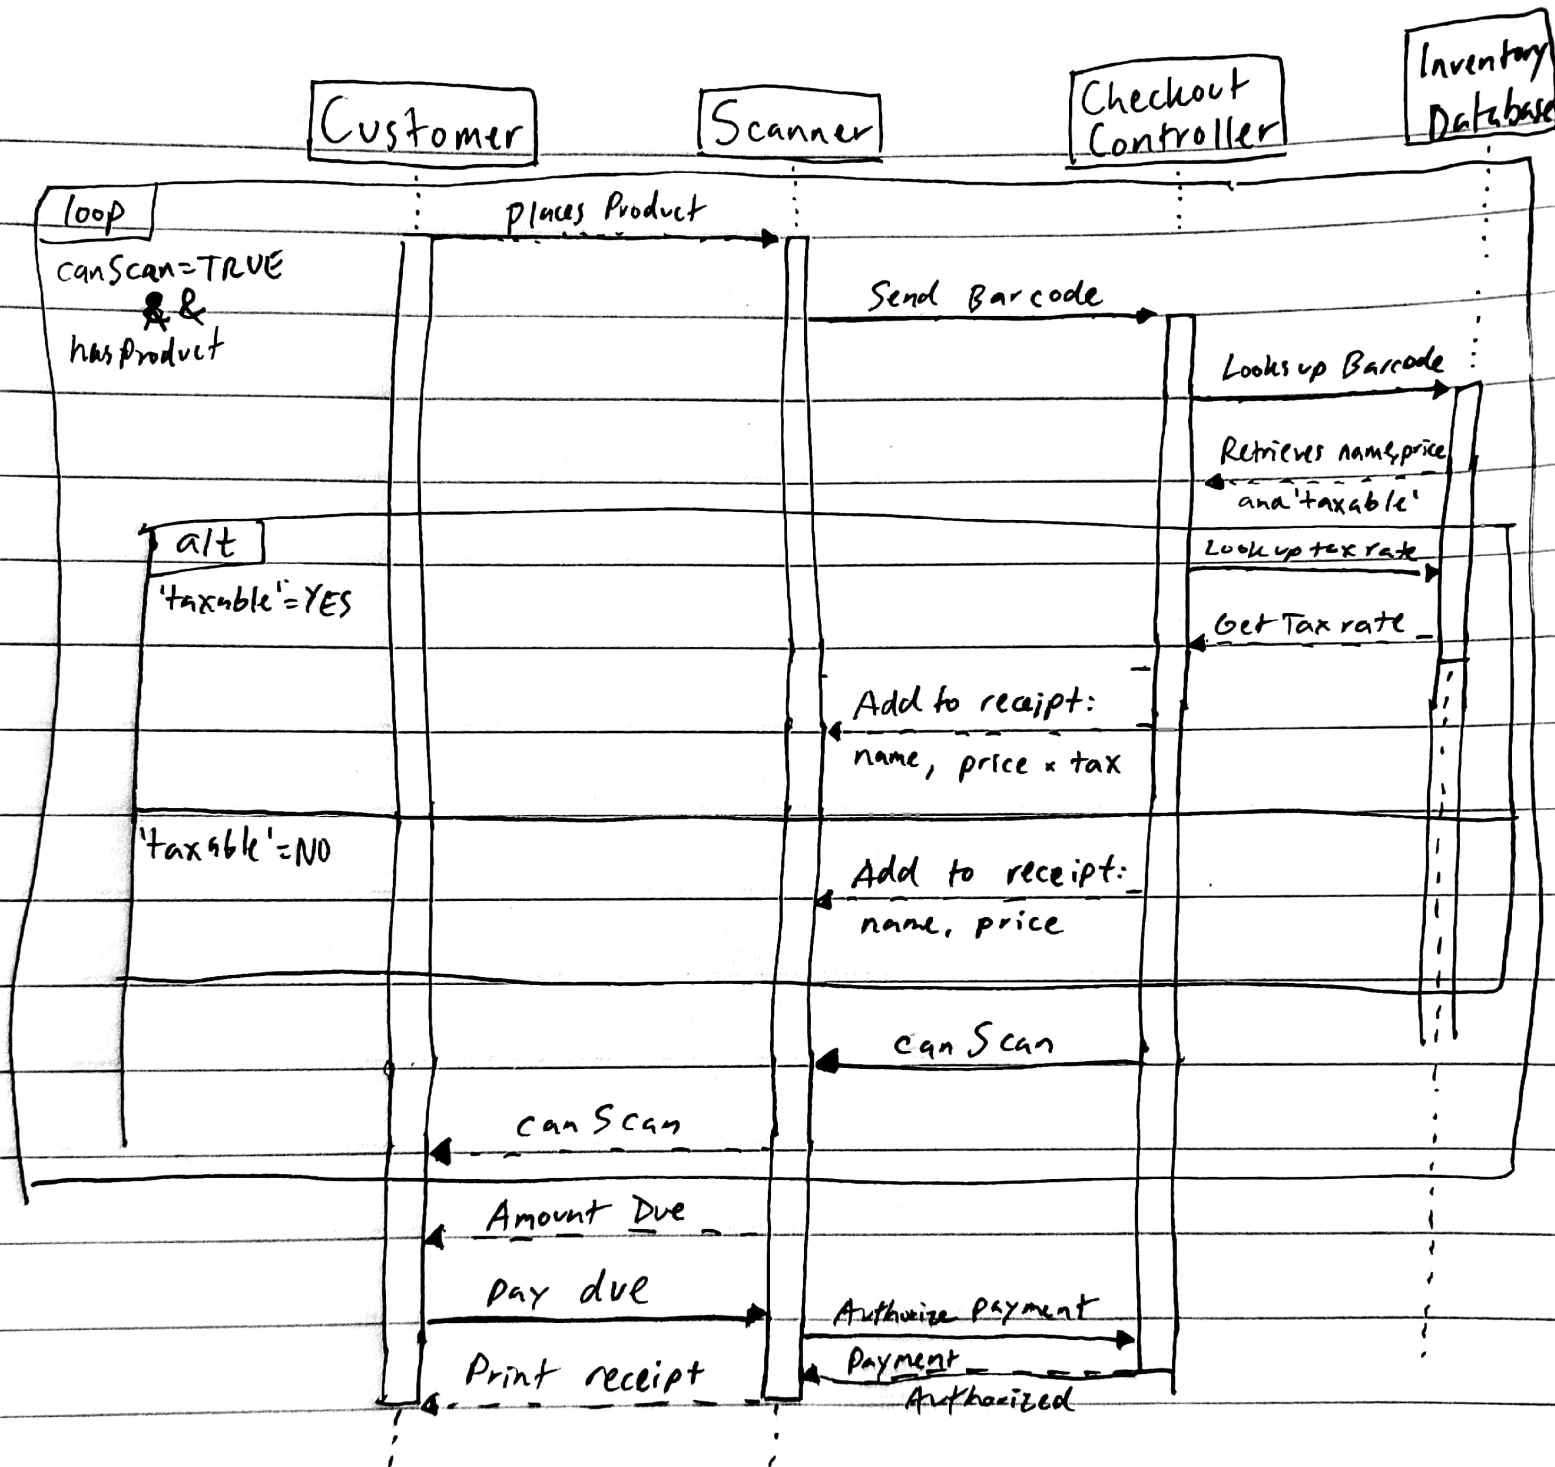 Customer
Scanner
Checkout
Controller
Inventory
Database
loop
canScan=TRUE
&&
hasProduct
Places Product
Send Barcode
Looks up Barcode
Retrieves name, price
and 'taxable'
alt
'taxable'=YES
Look up tax rate
Get Tax rate
Add to receipt:
name, price × tax
'taxable'=NO
Add to receipt:
name, price
canScan
canScan
Amount Due
Pay due
Authorize payment
Payment
Authorized
Print receipt